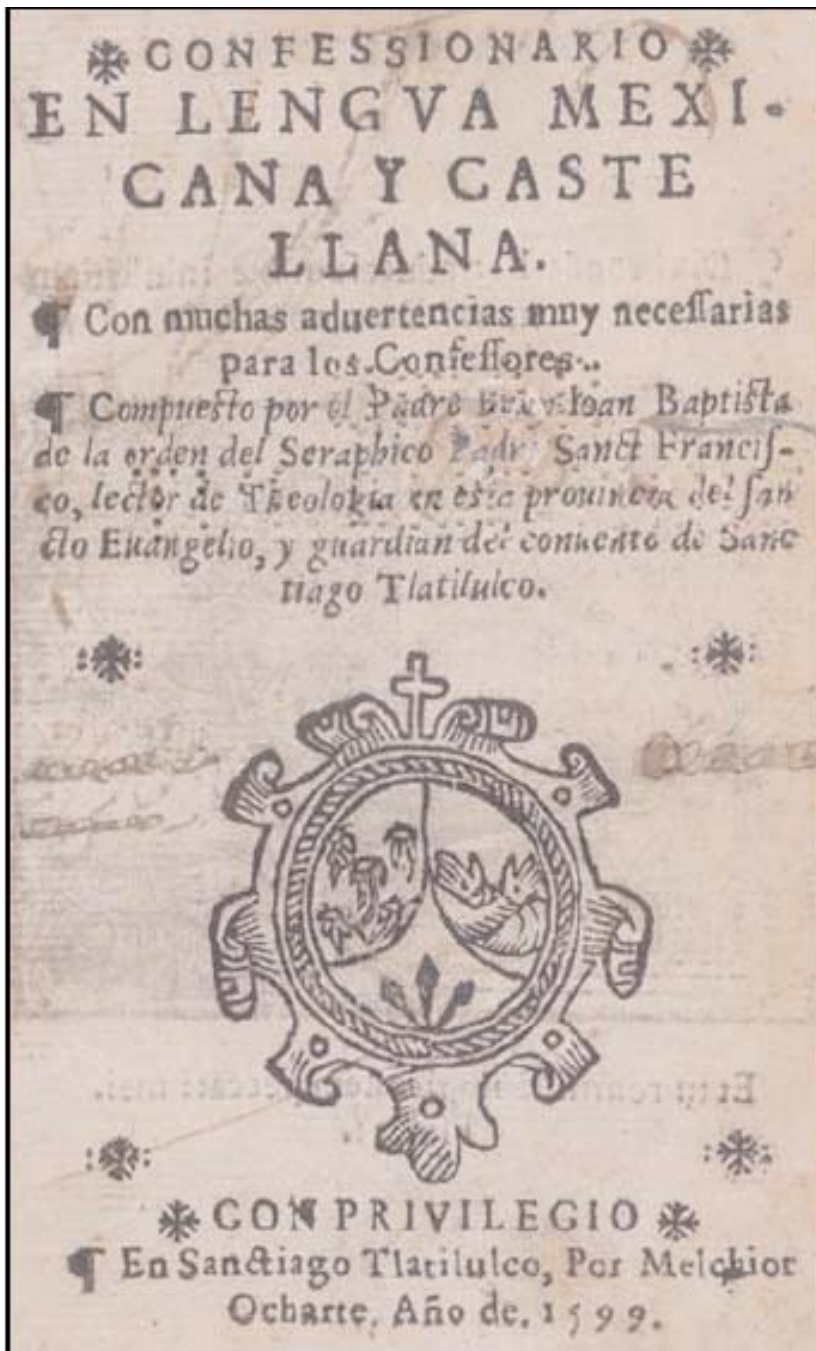 CONFESSIONARIO
EN LENGVA MEXI-
CANA Y CASTE
LLANA.
¶ Con muchas aduertencias muy necessarias
para los Confessores.
¶ Compuesto por el Padre Ioan Baptista
de la orden del Seraphico Padre Sanct Francis-
co, lector de Theologia en esta prouincia del san
cto Euangelio, y guardian del conuento de Sanc
tiago Tlatilulco.
CON PRIVILEGIO
¶ En Sanctiago Tlatilulco, Por Melchior
Ocharte. Año de. 1599.